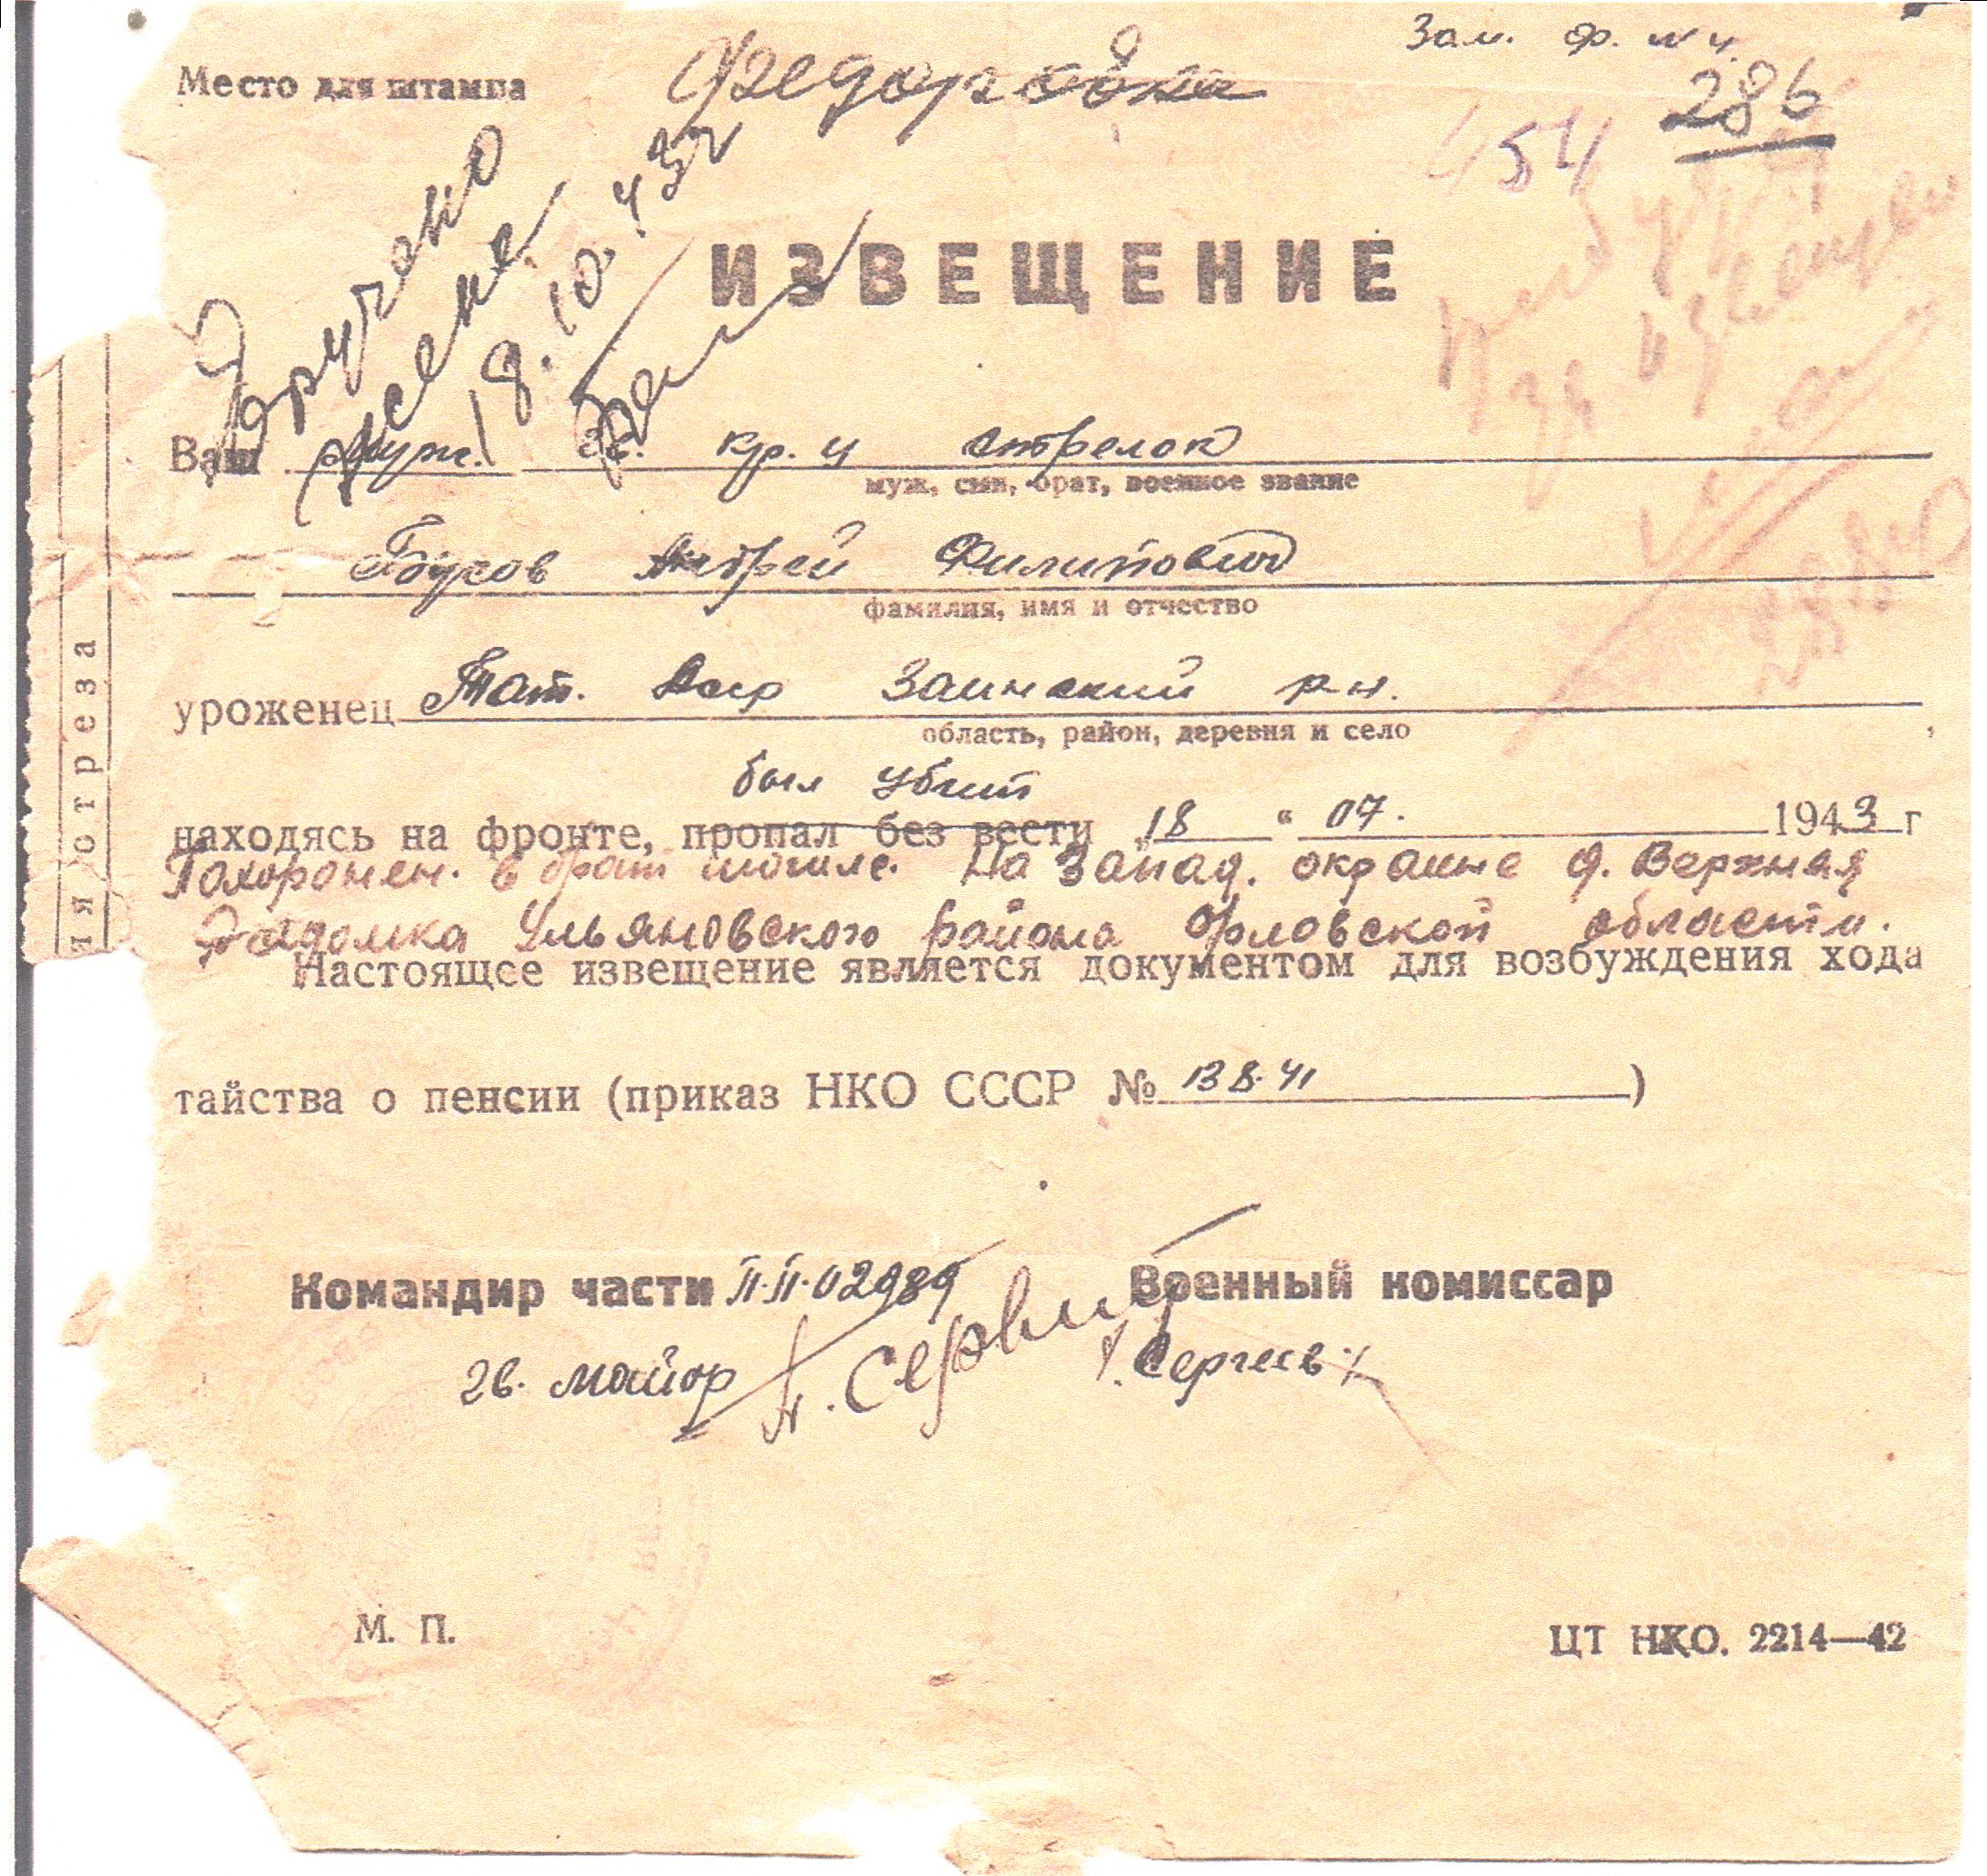 Зам. ф. № 4.
Место для штампа
286
454
Вручено
жене
18.10.43г
ИЗВЕЩЕНИЕ
Ваш муж. гв. кр. ц стрелок
муж, сын, брат, военное звание
Бусов Андрей Филипович
фамилия, имя и отчество
уроженец Тат. Асср Заинский р-н.
область, район, деревня и село
был убит
находясь на фронте, пропал без вести 18 " 07. 1943 г
Похоронен. в брат могиле. На Запад. окраине д. Верхняя
Ульяновского района Орловской области.
Настоящее извещение является документом для возбуждения хода
тайства о пенсии (приказ НКО СССР № 138.41 )
Командир части П.П.02989 Военный комиссар
гв. майор /.Сергеев./
М. П.
ЦТ НКО. 2214—42
ия отреза